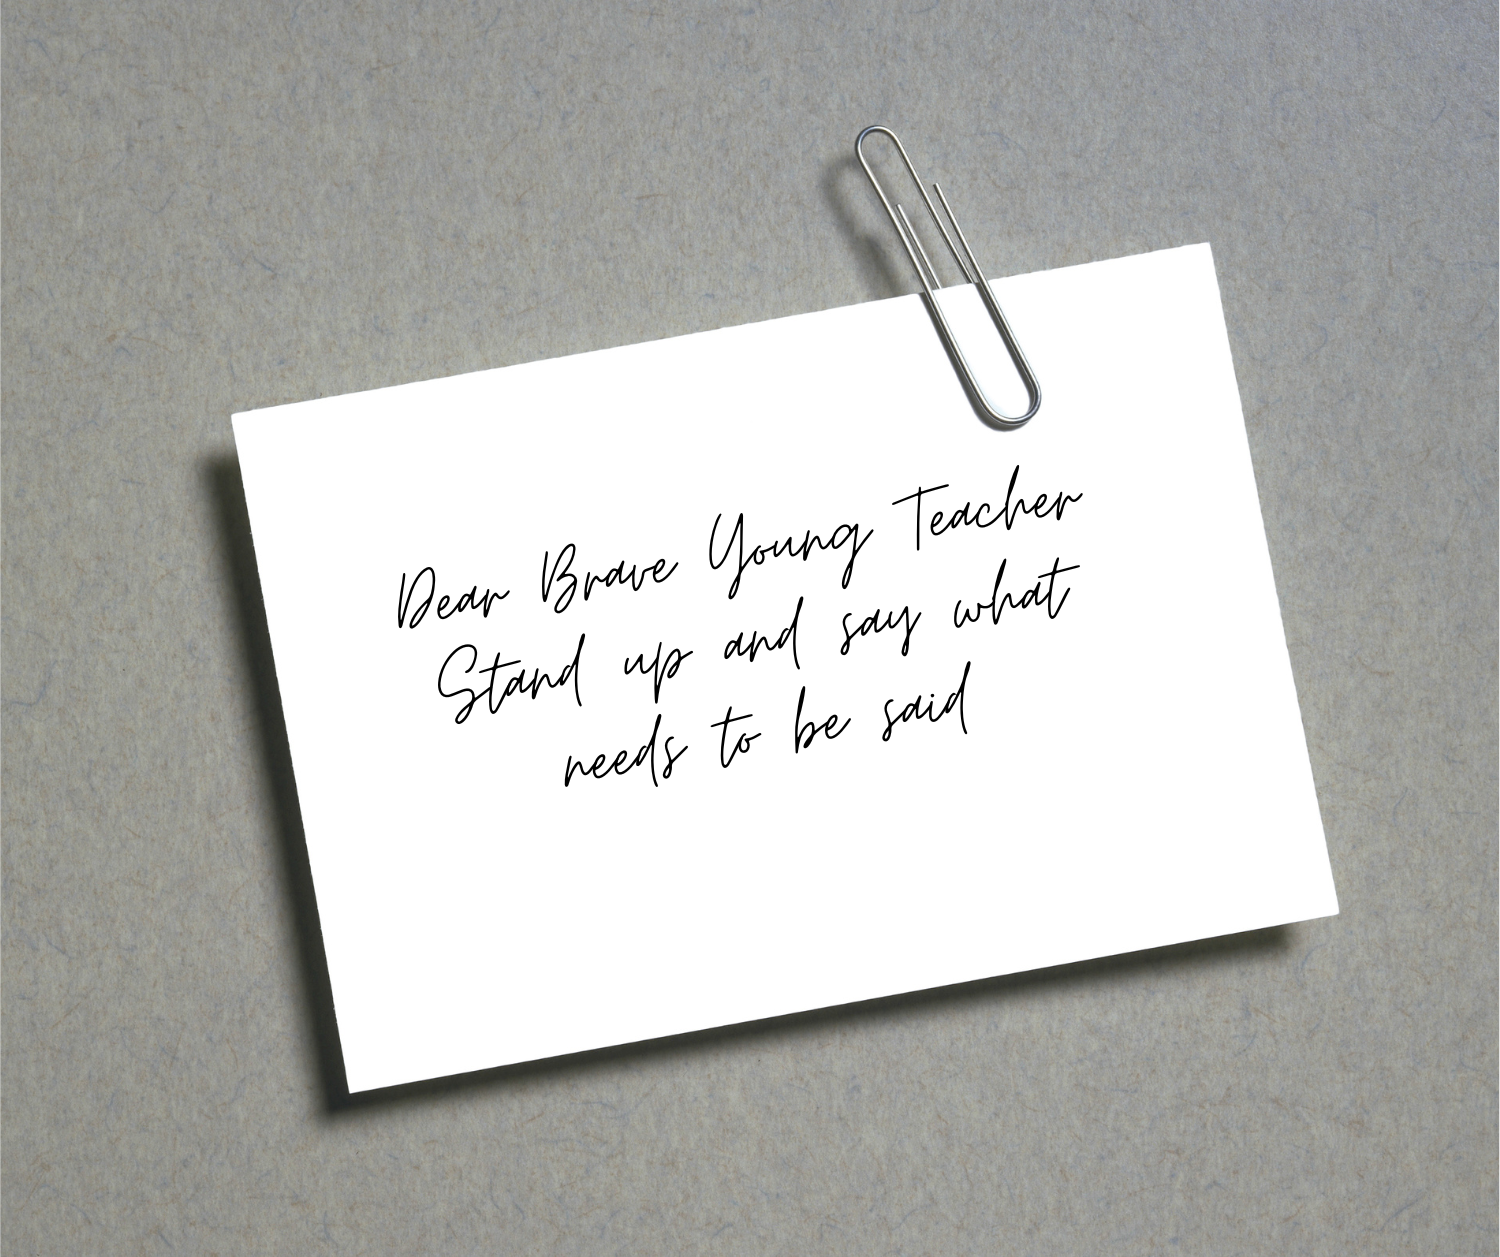 Dear Brave Young Teacher
Stand up and say what
needs to be said